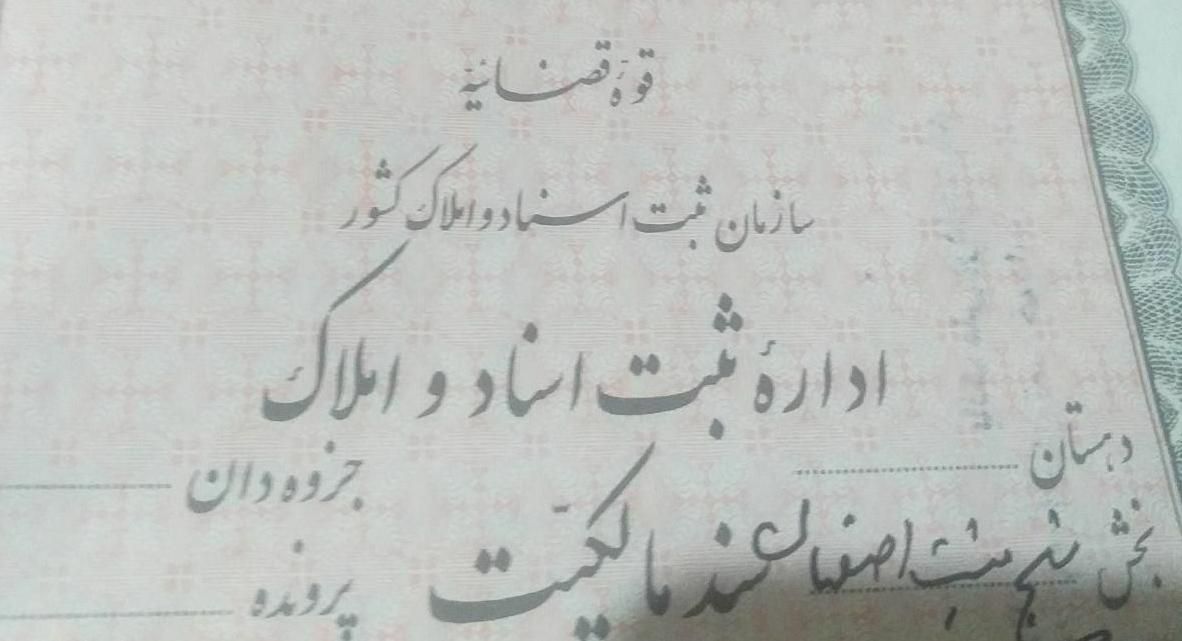 قوهٔ قضائیه
سازمان ثبت اسناد و املاک کشور
ادارهٔ ثبت اسناد و املاک
دهستان
جزوه دان
بخش پنج ثبت اصفهان
سند مالکیت
پرونده